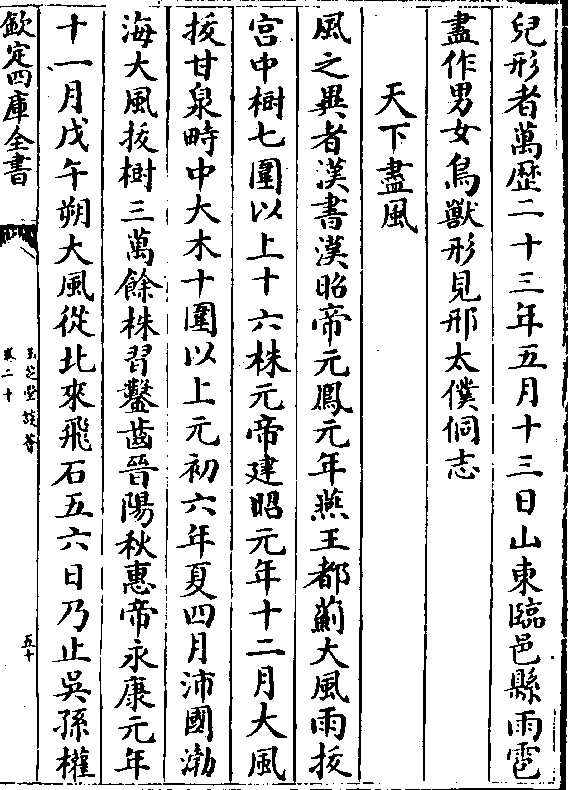 兒形者萬歴二十三年五月十三日山東臨邑縣雨雹
盡作男女鳥獸形見邢太僕侗志
天下盡風
風之異者漢書漢昭帝元鳳元年燕王都薊大風雨拔
宫中樹七圍以上十六株元帝建昭元年十二月大風
拔甘泉畤中大木十圍以上元初六年夏四月沛國渤
海大風拔樹三萬餘株習鑿齒晉陽秋惠帝永康元年
十一月戊午朔大風從北來飛石五六日乃止吳孫權
欽定四庫全書
玉芝堂談薈
卷二十
五十